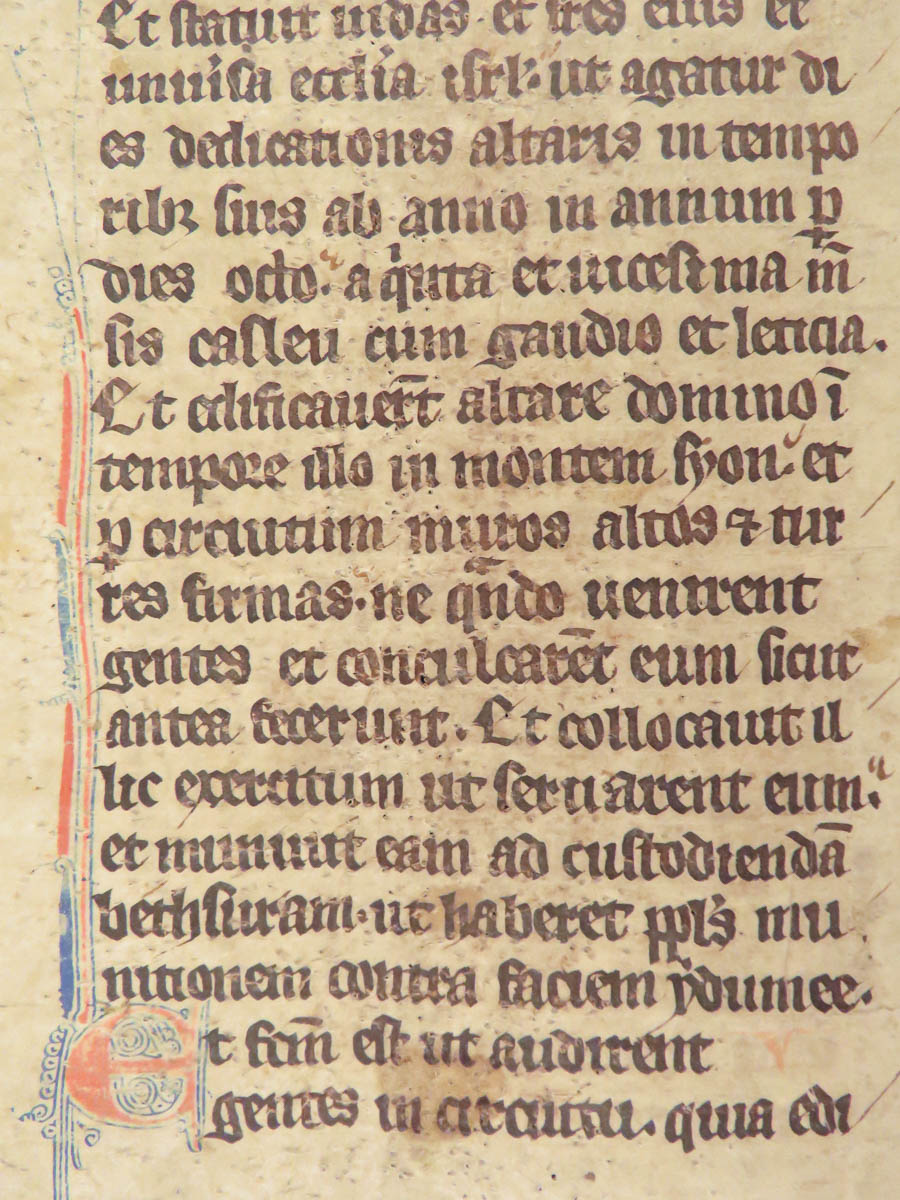 Et statuit iudas et fres eius et
uniu'sa eccl'ia isrl'. ut agatur di
es dedicationis altaris in tempo
ribꝫ suis ab anno in annum ꝑ
dies octo. a qⁱnta et uicesima m̅
sis casleu cum gaudio et leticia.
Et edificauer̅t altare domino i̅
tempore illo in montem syon. et
ꝑ circuitum muros altos ⁊ tur
res firmas. ne qn̅do uenirent
gentes et conculcare̅t eum sicut
antea fecerunt. Et collocauit il
lic exercitum ut seruarent eum.
et muniuit eam ad custodienda̅
bethsuram. ut haberet ppl's mu
nitionem contra faciem ydumee.
Et fcm̅ est ut audirent
gentes in circuitu. quia edi